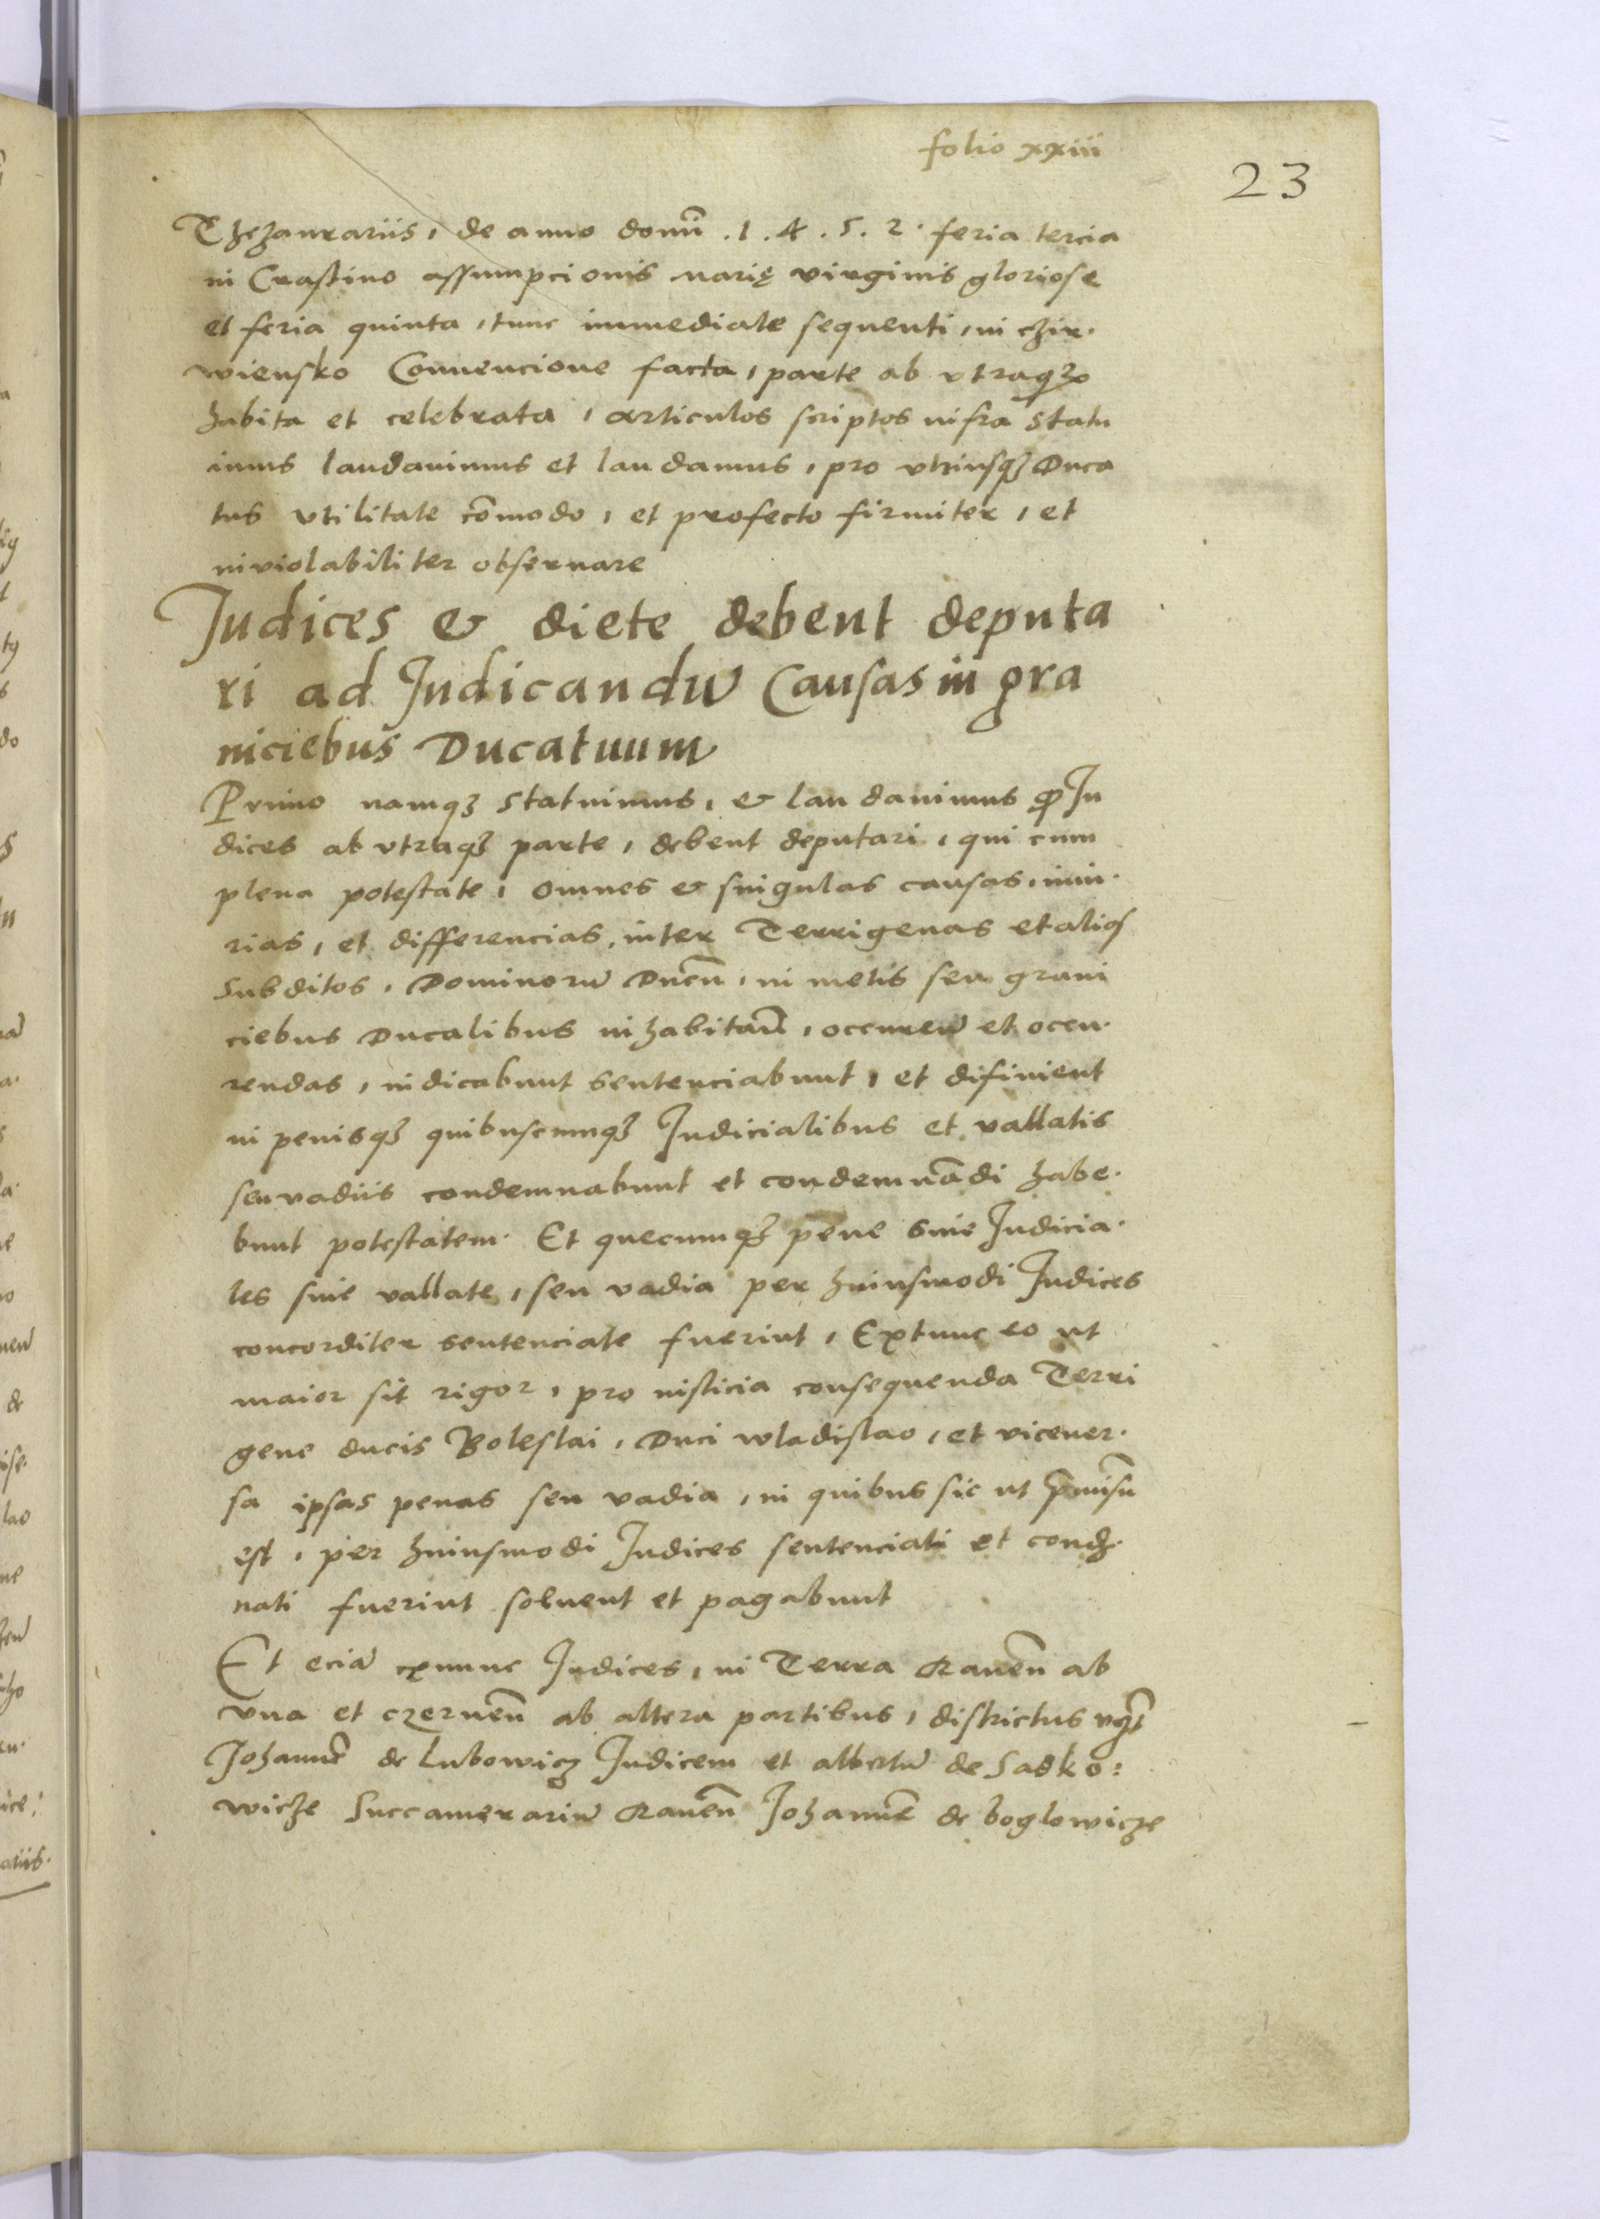 folio xxiii
23
Thezaurariis, de anno domī .1.4.5.2. feria tercia
in Crastino assumpcionis marię virginis gloriose
et feria quinta, tunc immediate sequenti, in czir.
wiensko Convencione facta, parte ab vtraqꝫ
habita et celebrata, articulos scriptos infra statu
imus laudauimus et laudamus, pro vtriusqꝫ Duca
tus vtilitate cōmodo, et profecto firmiter, et
inviolabiliter obseruare
Iudices & diete debent deputa
ri ad Iudicandū Causas in gra
niciebus Ducatuum
Primo namqꝫ statuimus, & laudauimus ꝙ Iu
dices ab vtraqꝫ parte, debent deputari, qui cum
plena potestate, omnes & singulas causas, iniu.
rias, et differencias, inter Terrigenas et alios
subditos, Dominorū Ducū, in metis seu grani
ciebus Ducalibus inhabitan̄, occurren̄ et occu.
rendas, iudicabunt sentenciabunt, et difinient
in penisqꝫ quibuscumqꝫ Iudicialibus et vallatis
seu vadiis condemnabunt et condemnādi habe.
bunt potestatem. Et quecumqꝫ pene siue Iudicia.
les siue vallate, seu vadia per huiusmodi Iudices
concorditer sentenciate fuerint, Extunc eo ut
maior sit rigor, pro iusticia consequenda Terri
gene ducis Boleslai, Duci wladislao, et vicever.
sa ipsas penas seu vadia, in quibus sic ut p̄misū
est, per huiusmodi Iudices sentenciati et condꝫ.
nati fuerint soluent et pagabunt
Et eciā exnunc Iudices, in Terra Raven̄ ab
vna et czernen̄ ab altera partibus, districtus vꝫt
Johannē de Lubowicz Iudicem et albertū de Sadko:
wicze Succamerariū Raven̄ Johannē de boglowicze